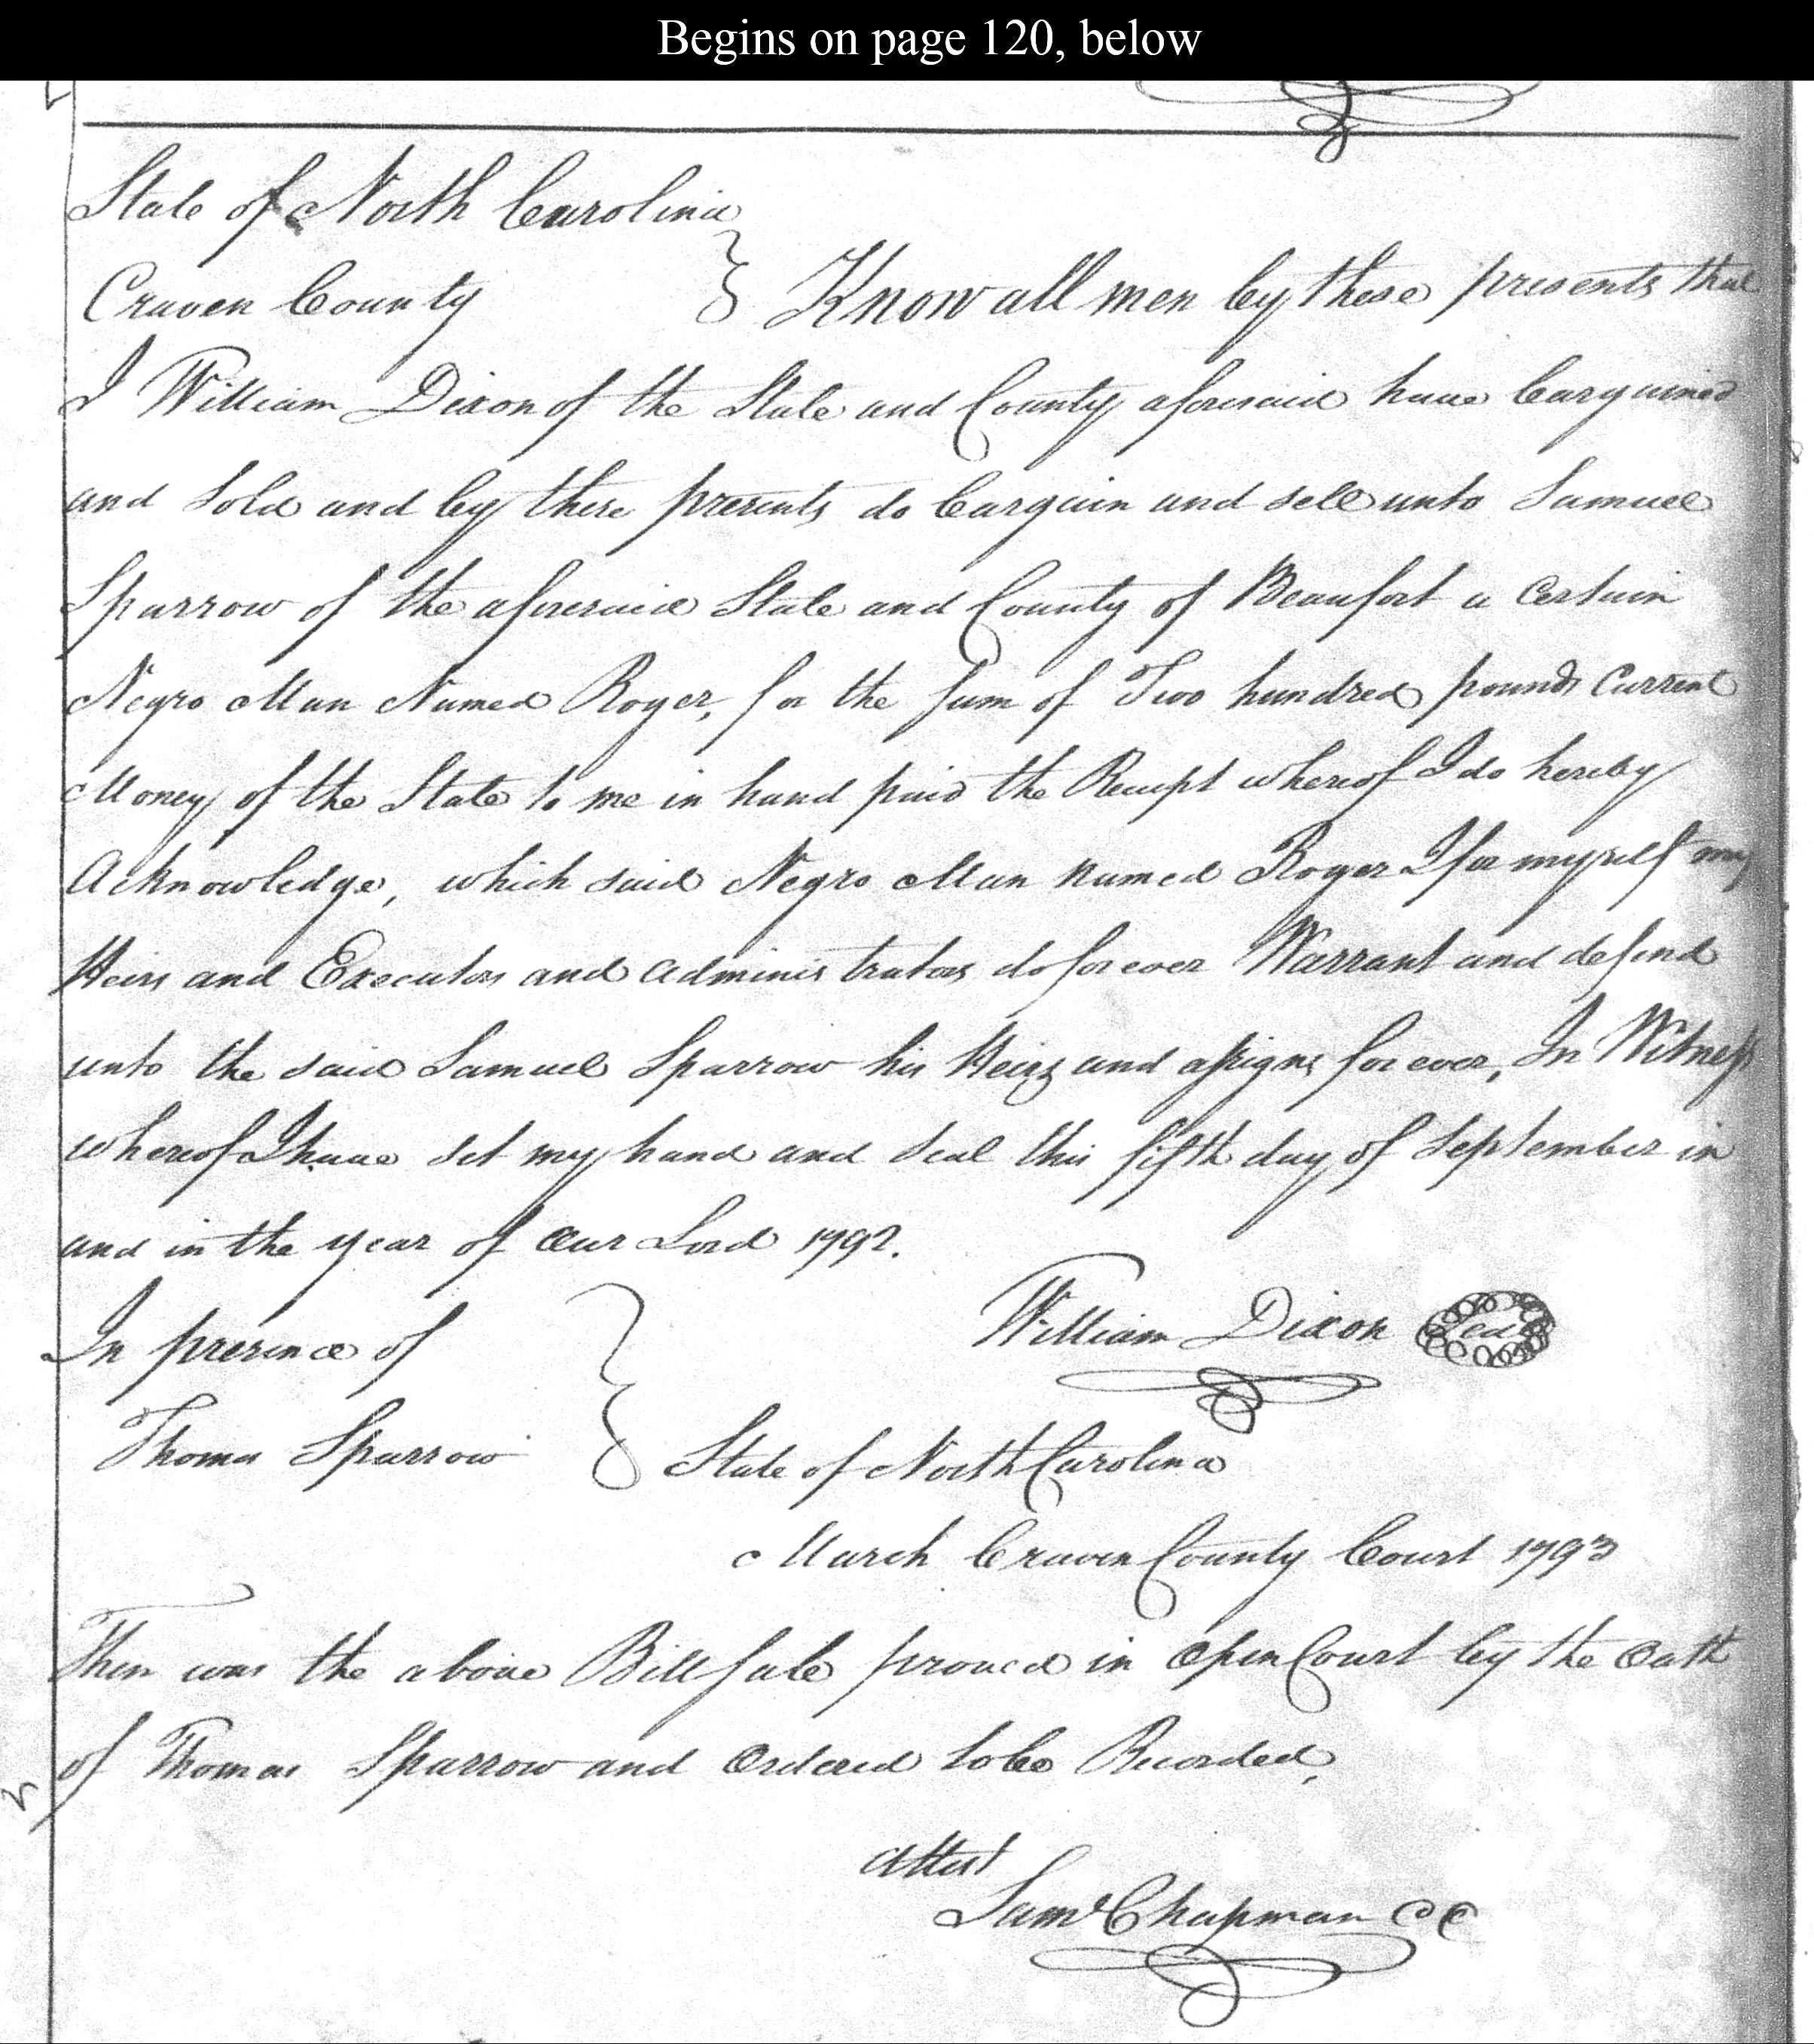 Begins on page 120, below
State of North Carolina
Craven County } Know all men by these presents that
I William Dixon of the State and County aforesaid have bargained
and Sold and by these presents do bargain and sell unto Samuel
Sparrow of the aforesaid State and County of Beaufort a Certain
Negro Man Named Roger, for the Sum of Two hundred pounds Current
Money of the State to me in hand paid the Receipt whereof I do hereby
Acknowledge, which said Negro Man named Roger I for myself my
Heirs and Executors and administrators do for ever Warrant and defend
unto the said Samuel Sparrow his Heirs and assigns for ever, In Witness
whereof I have set my hand and seal this fifth day of September in
and in the year of Our Lord 1792.
In presence of } William Dixon Seal
Thomas Sparrow
State of North Carolina
March Craven County Court 1793
Then was the above Bill Sale proved in Open Court by the Oath
of Thomas Sparrow and Ordered to be Recorded,
Attest
Saml Chapman CC